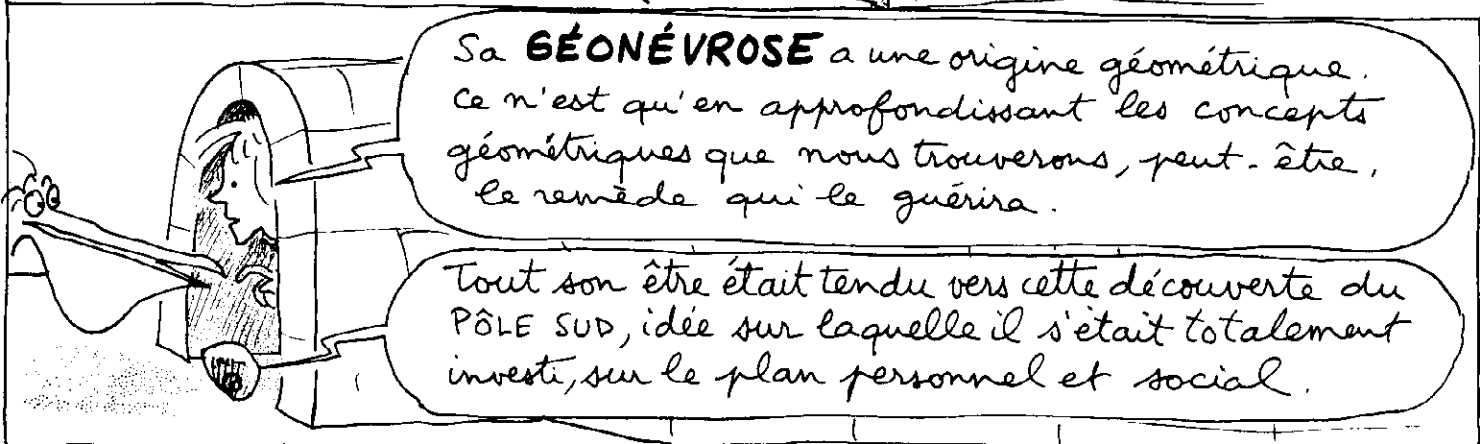 Sa GÉONÉVROSE a une origine géométrique.
Ce n'est qu'en approfondissant les concepts
géométriques que nous trouverons, peut-être,
le remède qui le guérira.
Tout son être était tendu vers cette découverte du
PÔLE SUD, idée sur laquelle il s'était totalement
investi, sur le plan personnel et social.